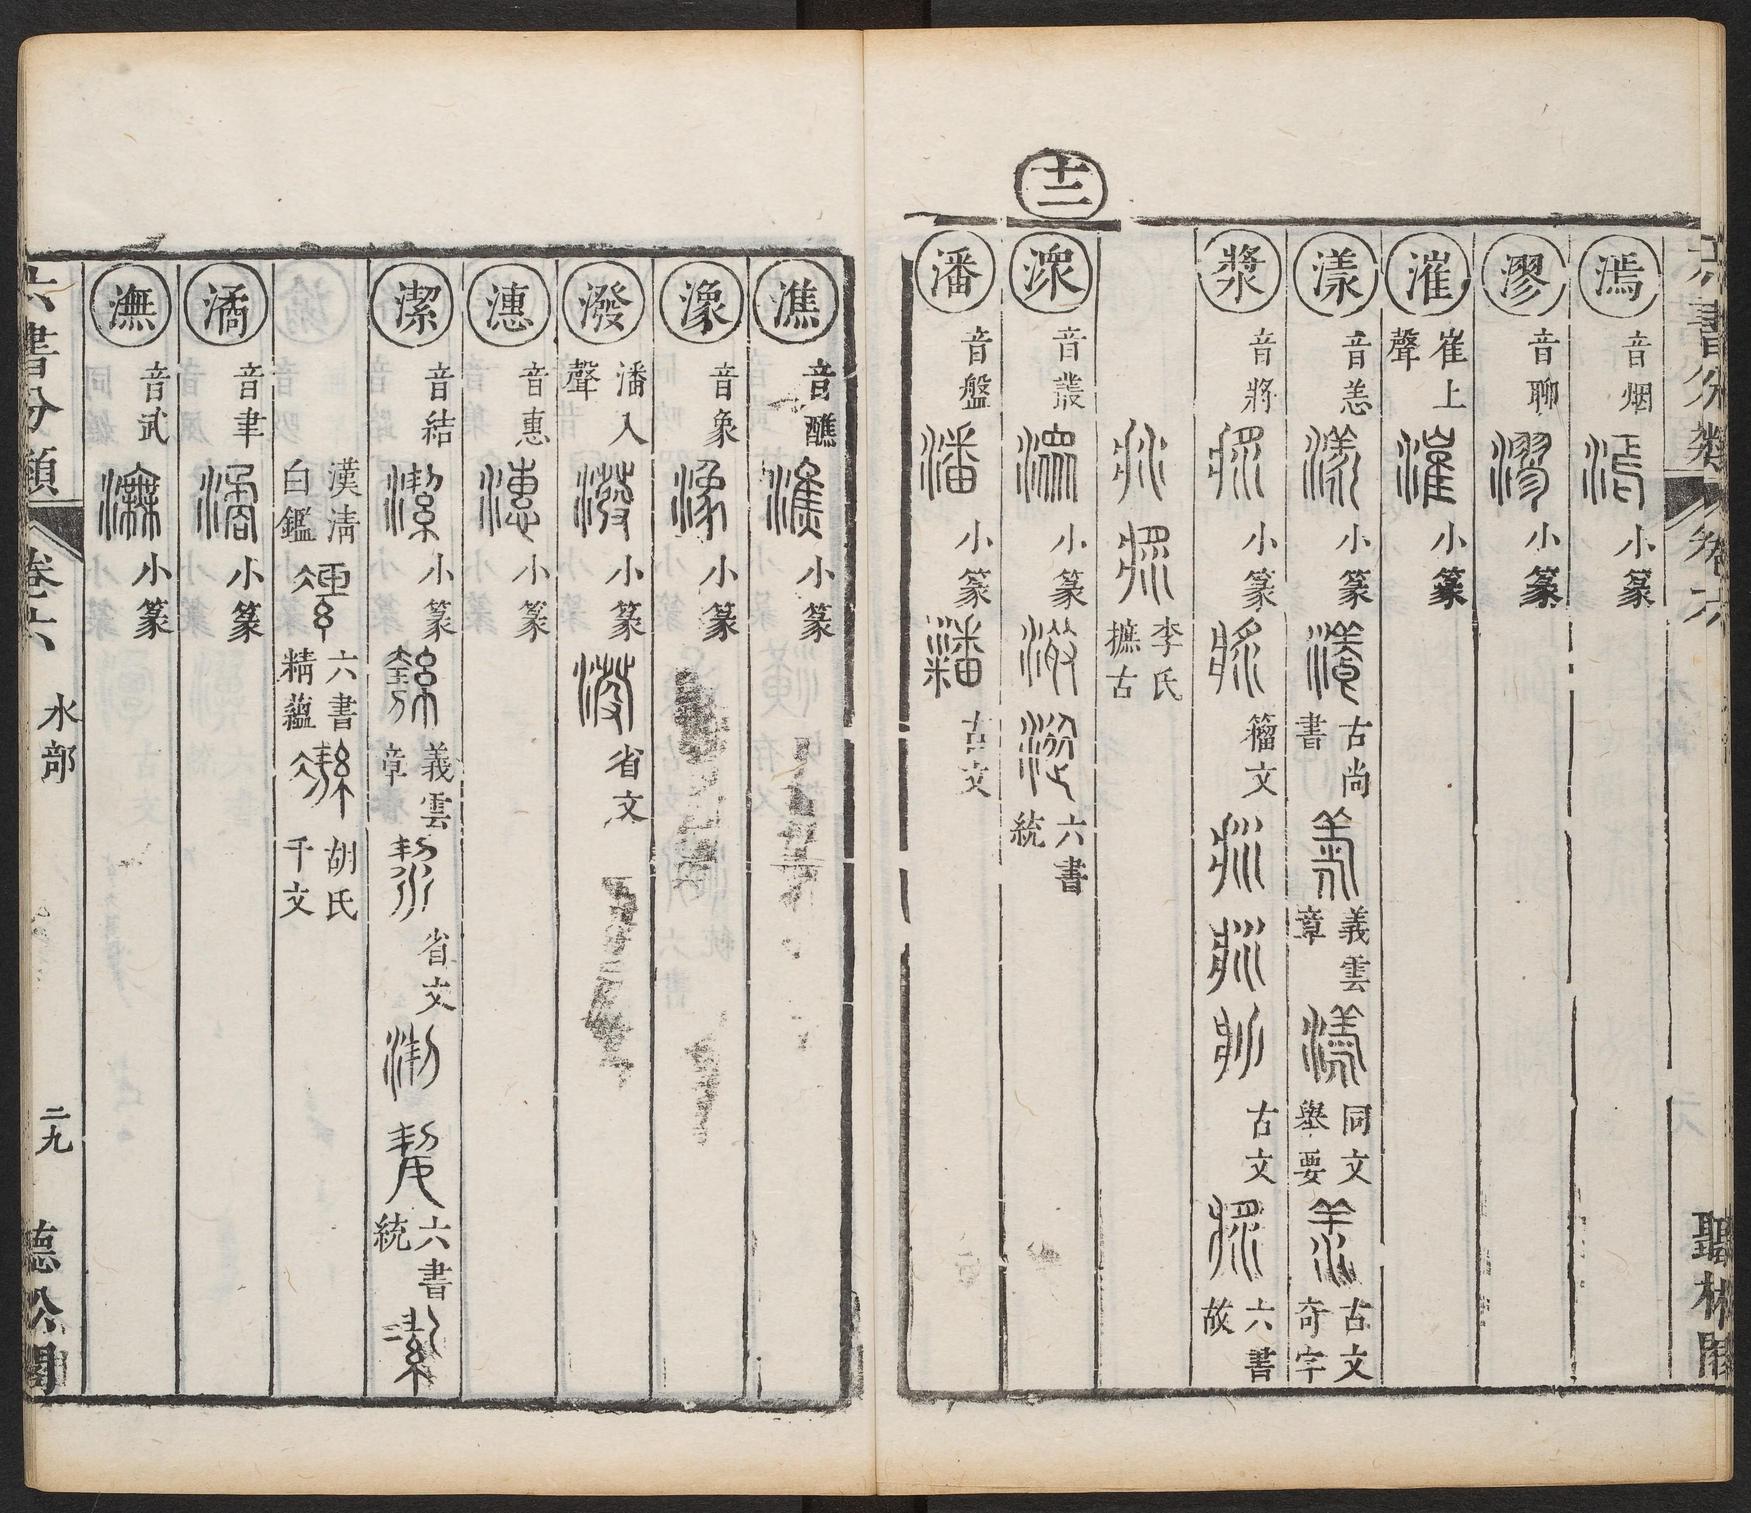 六書分類 卷六 聽松閣
漹 音烟 小篆
漻 音聊 小篆
漼 崔上聲 小篆
漾 音恙 小篆 古尚書 義雲章 同文舉要 古文奇字
漿 音將 小篆 籀文 古文 六書故
李氏摭古
十二
潀 音叢 小篆 六書統
潘 音盤 小篆 古文
潐 音醮 小篆
潒 音象 小篆
潑 潘入聲 小篆 省文
潓 音惠 小篆
潔 音結 小篆 義雲章 省文 六書統
漢淸白鑑 六書精蘊 胡氏千文
潏 音聿 小篆
潕 音武 小篆
六書分類 卷六 水部 二九 聽松閣